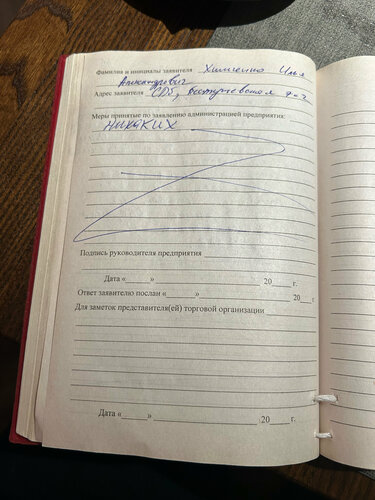 Фамилия и инициалы заявителя Химченко Илья
Александрович
Адрес заявителя СПб,
Меры принятые по заявлению администрацией предприятия:
НИКАКИХ
Подпись руководителя предприятия
Дата «______» ______ 20____ г.
Ответ заявителю послан «______» ______ 20___ г.
Для заметок представителя(ей) торговой организации
Дата «______» ______ 20____ г.